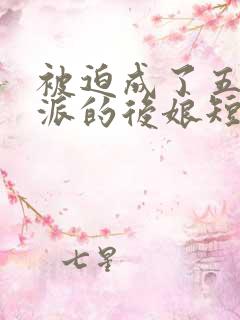 被迫成了五
派的後娘短
七星